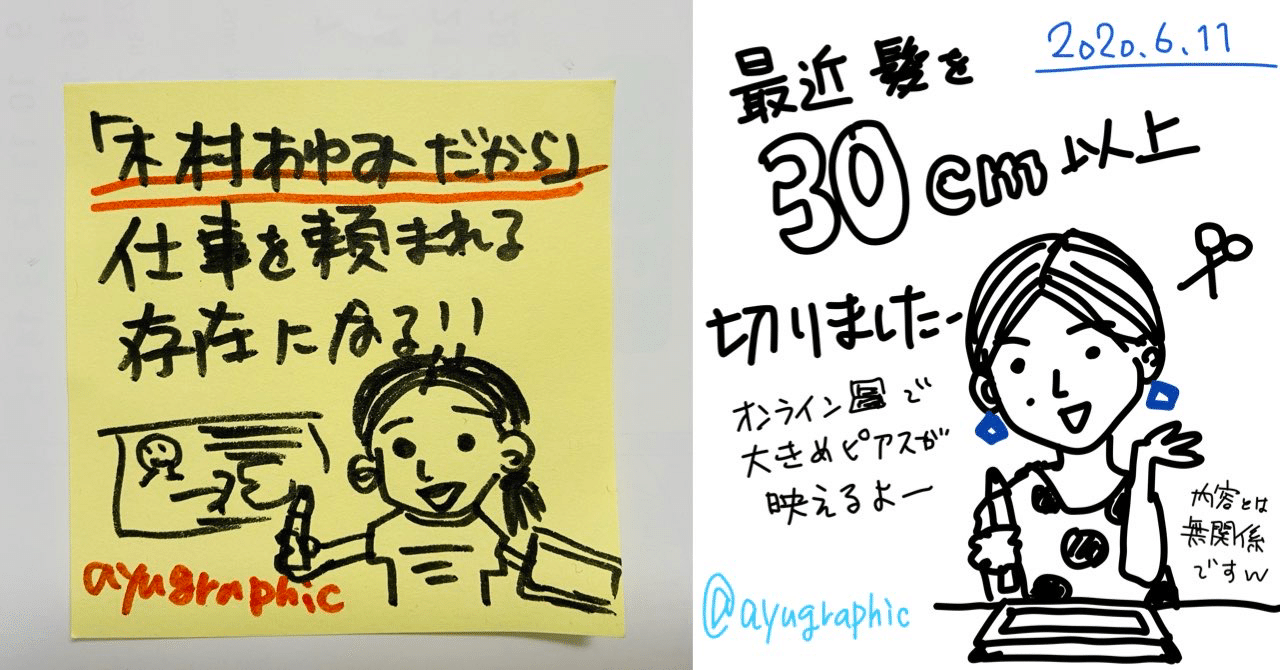 「木村あゆみだから」
仕事を頼まれる
存在になる!!
ayugraphic
2020.6.11
最近髪を
30cm以上
切りました-
オンライン圖で
大きめピアスが
映えるよー
内容とは
無関係
ですw
@ayugraphic